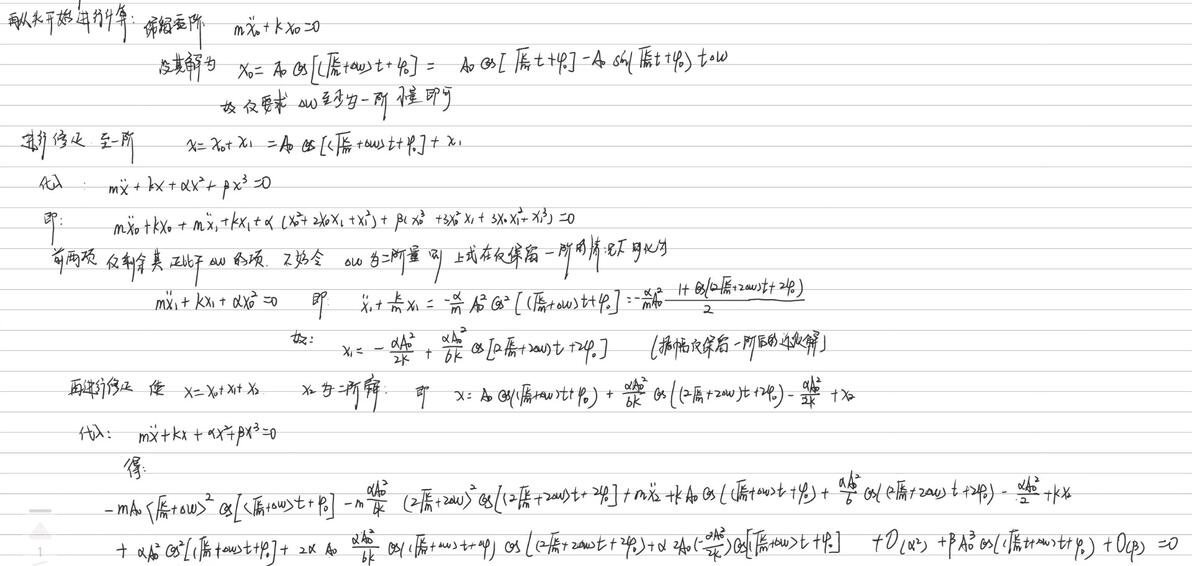 再从头开始进行计算: 保留零阶 mẍ₀+kx₀=0
设其解为 x₀=A₀cos[(√(k/m)+Δω)t+φ₀] = A₀cos[√(k/m)t+φ₀]-A₀sin(√(k/m)t+φ₀)tΔω
故仅要求 Δω至少为一阶小量即可
进行修正 至一阶 x=x₀+x₁=A₀cos[(√(k/m)+Δω)t+φ₀]+x₁
代入: mẍ+kx+αx²+βx³=0
即: mẍ₀+kx₀+mẍ₁+kx₁+α(x₀²+2x₀x₁+x₁²)+β(x₀³+3x₀²x₁+3x₀x₁²+x₁³)=0
前两项 仅剩余其正比于Δω的项. 不妨令 Δω为二阶量 则 上式在仅保留一阶的情况下可化为
mẍ₁+kx₁+αx₀²=0 即 ẍ₁+(k/m)x₁=-(α/m)A₀²cos²[(√(k/m)+Δω)t+φ₀]=-(α/m)A₀²(1+cos((2√(k/m)+2Δω)t+2φ₀))/2
故: x₁=-αA₀²/2k+(αA₀²/6k)cos[(2√(k/m)+2Δω)t+2φ₀] (振幅仅保留一阶后的近似解)
再进行修正 使 x=x₀+x₁+x₂ x₂为二阶解: 即 x=A₀cos((√(k/m)+Δω)t+φ₀)+(αA₀²/6k)cos((2√(k/m)+2Δω)t+2φ₀)-αA₀²/2k+x₂
代入: mẍ+kx+αx²+βx³=0
得:
-mA₀(√(k/m)+Δω)²cos[(√(k/m)+Δω)t+φ₀]-m(αA₀²/6k)(2√(k/m)+2Δω)²cos[(2√(k/m)+2Δω)t+2φ₀]+mẍ₂+kA₀cos((√(k/m)+Δω)t+φ₀)+(αA₀²/6)cos((2√(k/m)+2Δω)t+2φ₀)-αA₀²/2+kx₂
+αA₀²cos²[(√(k/m)+Δω)t+φ₀]+2αA₀(αA₀²/6k)cos((√(k/m)+Δω)t+φ₀)cos((2√(k/m)+2Δω)t+2φ₀)+α2A₀(-αA₀²/2k)cos[(√(k/m)+Δω)t+φ₀]+O(α²)+βA₀³cos((√(k/m)+Δω)t+φ₀)+O(β)=0
1